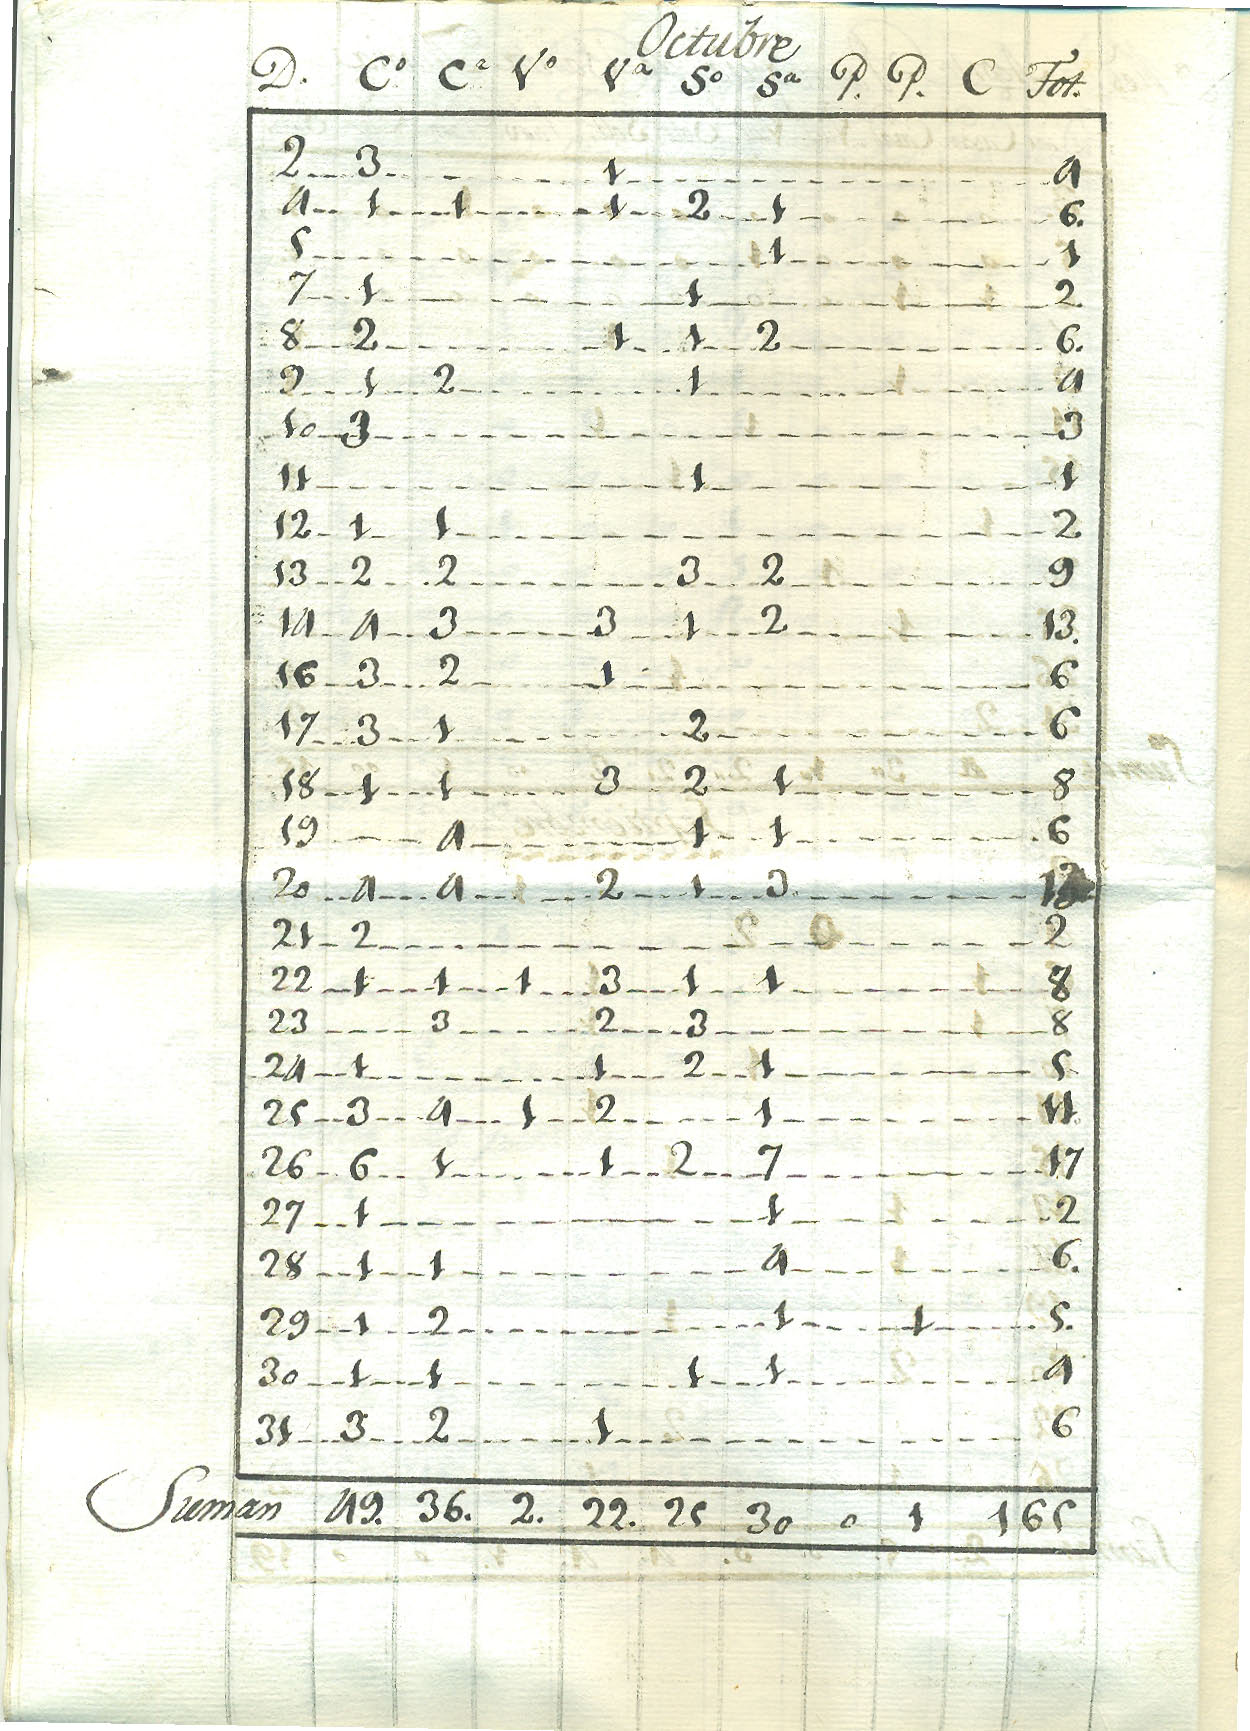 Octubre
D. Cº Cª Vº Vª Sº Sª P. P. C Tot.
2 3 1 4
4 1 1 1 2 1 6.
5 1 1
7 1 1 2
8 2 1 1 2 6.
9 1 2 1 4
10 3 3
11 1 1
12 1 1 2
13 2 2 3 2 9
14 4 3 3 1 2 13.
16 3 2 1 6
17 3 1 2 6
18 1 1 3 2 1 8
19 4 1 1 6
20 4 4 2 1 3
21 2 2
22 1 1 1 3 1 1 8
23 3 2 3 8
24 1 1 2 1 5
25 3 4 1 2 1 11.
26 6 1 1 2 7 17
27 1 1 2
28 1 1 4 6.
29 1 2 1 1 5.
30 1 1 1 1 4
31 3 2 1 6
Suman 49. 36. 2. 22. 25 30 0 1 165